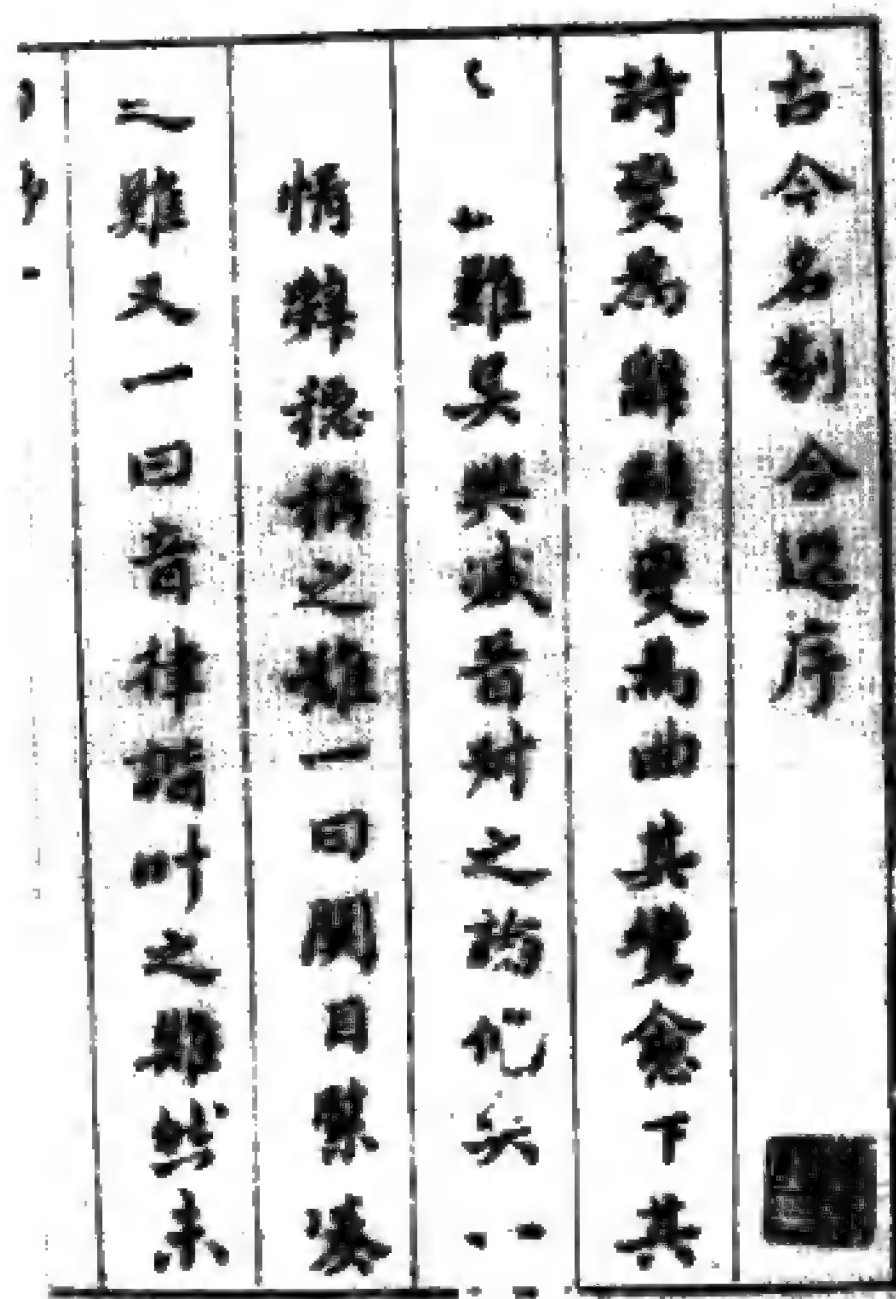 古今名劇合選序
詩變為辭辭變為曲其變愈下其
難吳興臧晉叔之論備矣
情辭穩稱之難一曰關目緊湊
之難又一曰音律諧叶之難然未